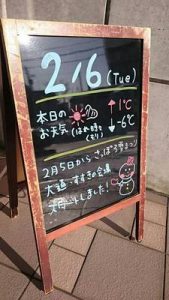 2/6 (Tue)
本日の
お天気
(はれ時々
くもり)
↑1℃
↓-6℃
2月5日から さっぽろ雪まつり
大通・すすきの会場
しました!